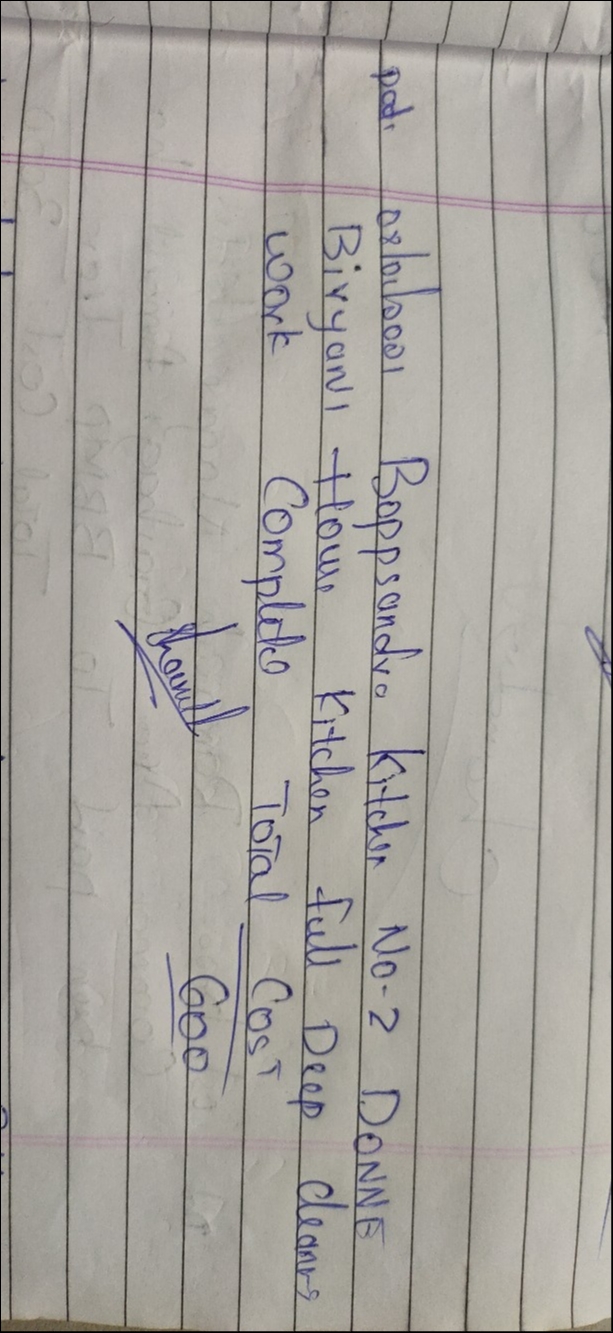 Boppsandra Kitchen No-2 DONNE
Biryani House Kitchen full Deep cleaning
Work Complete Total Cost
600